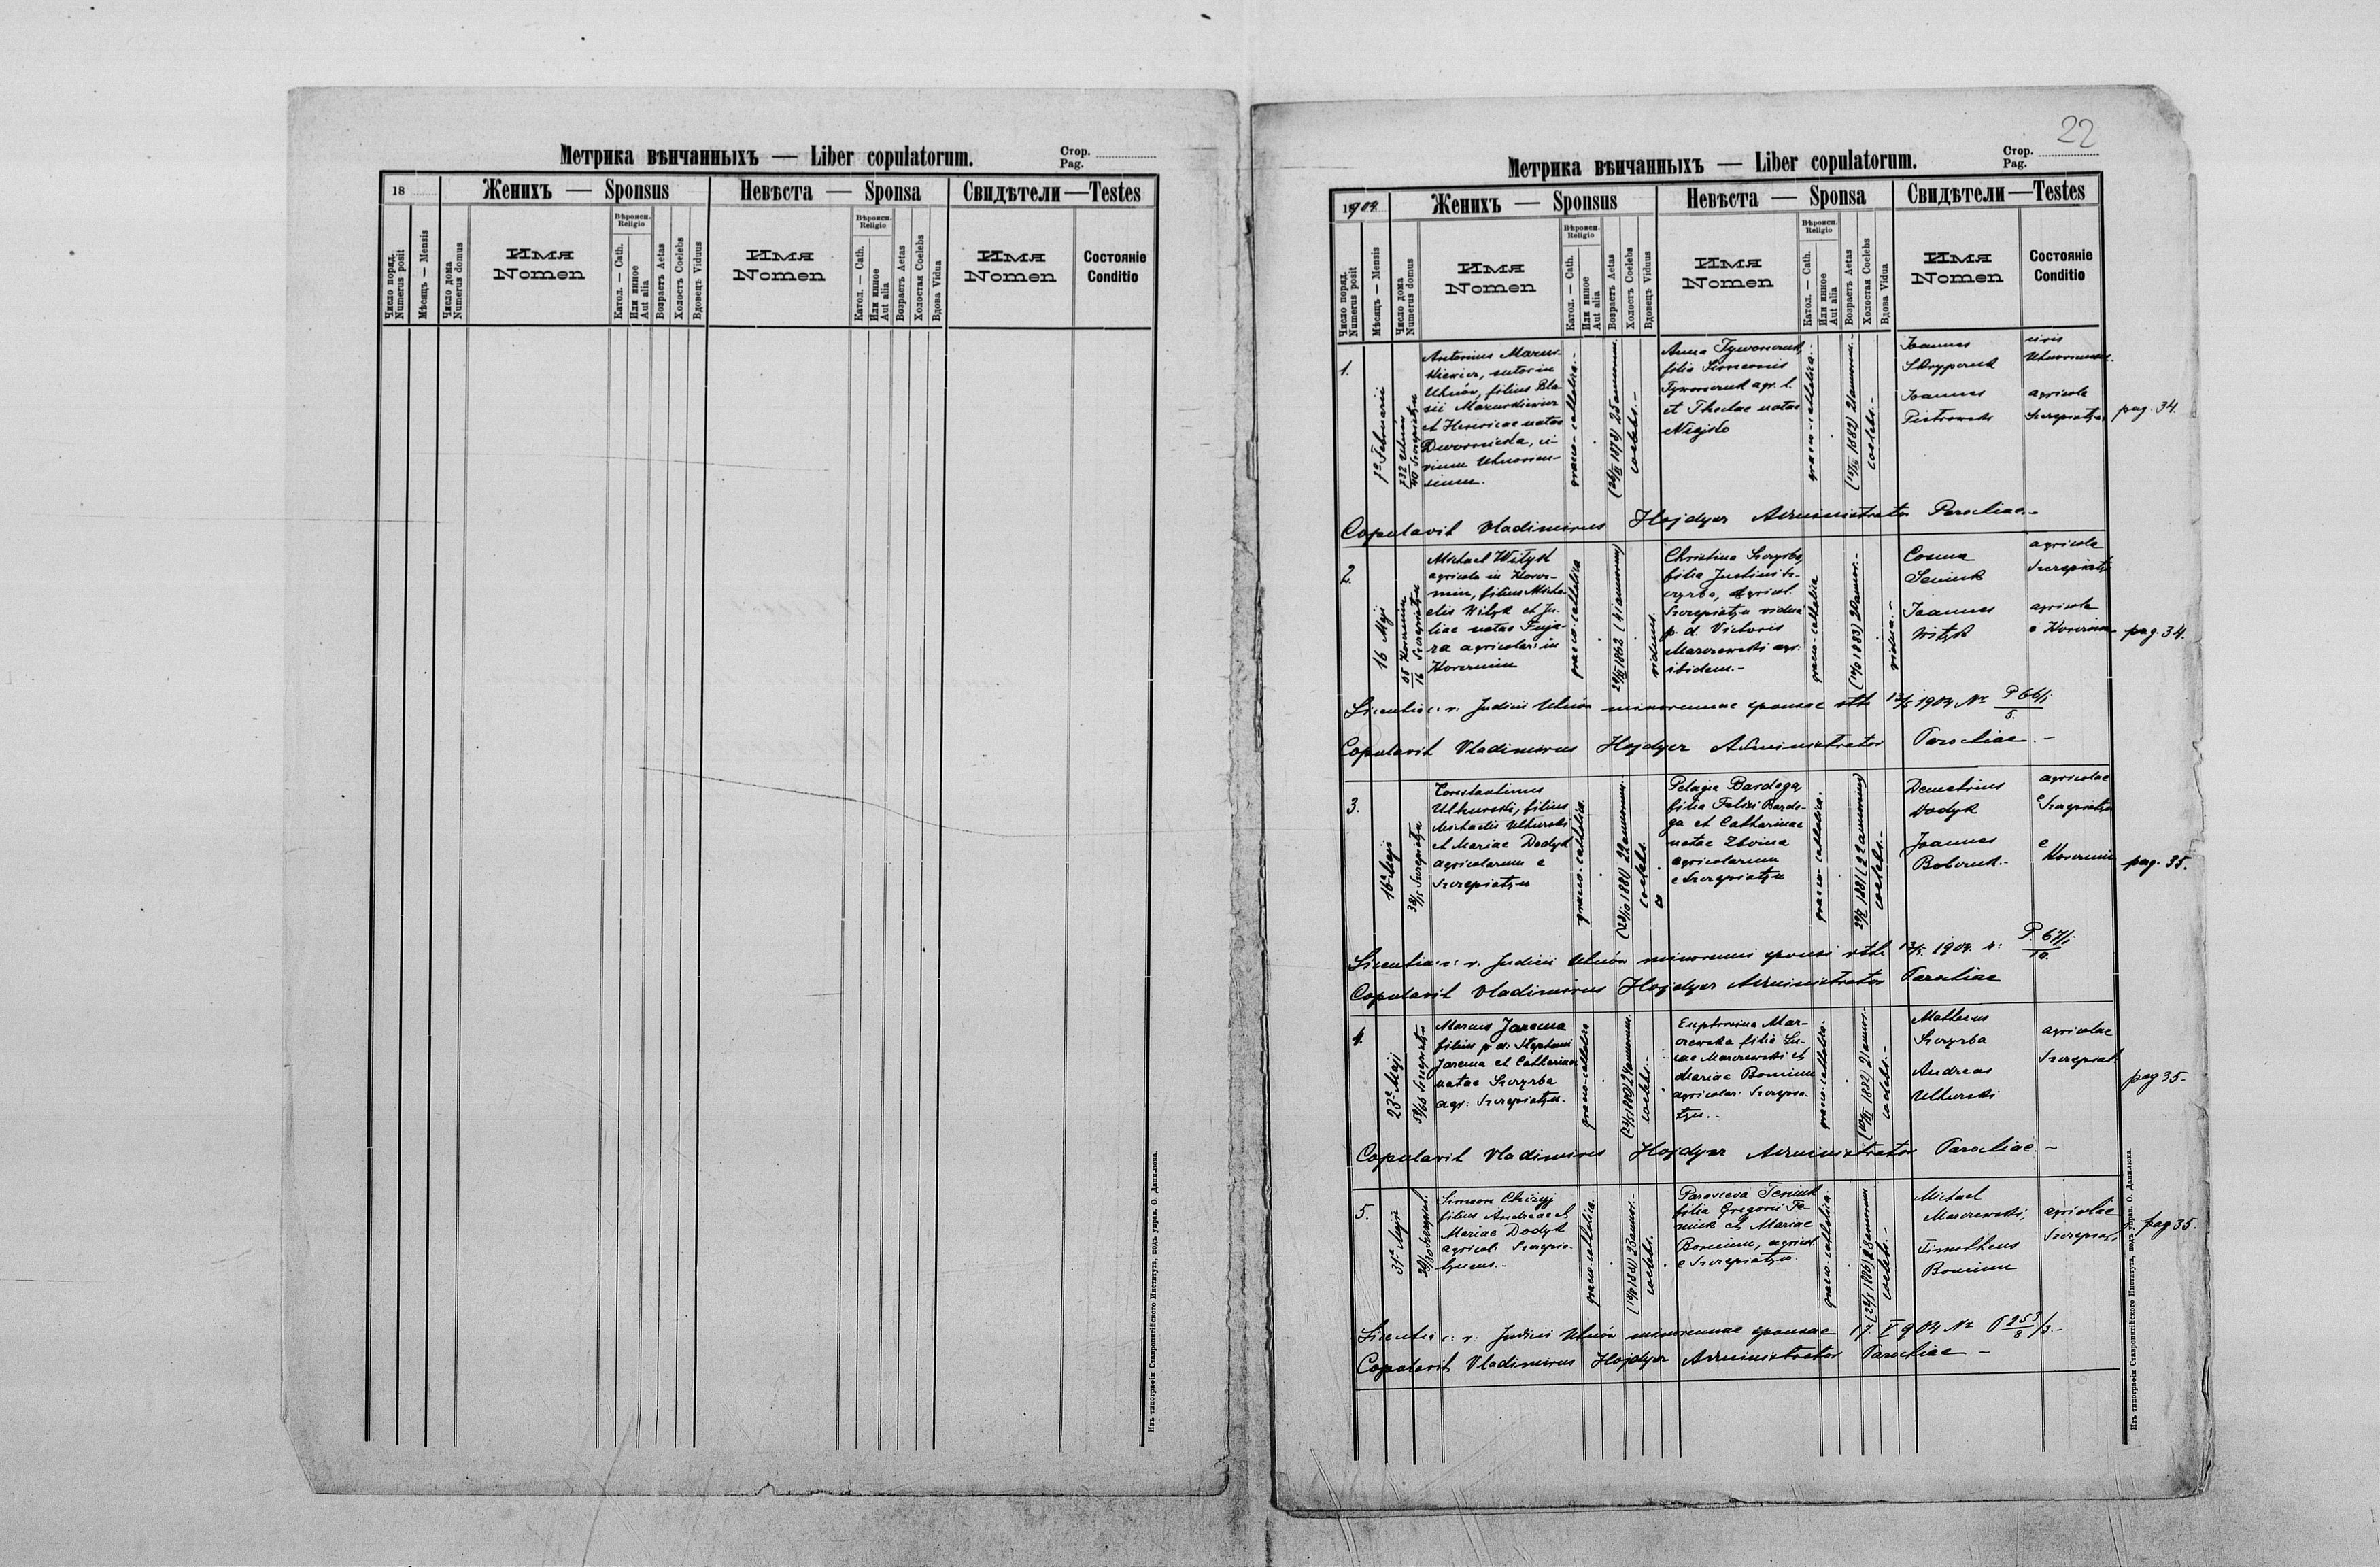 Метрика вѣнчанныхъ — Liber copulatorum.
Стор.
Pag.
18
Женихъ — Sponsus
Невѣста — Sponsa
Свидѣтели — Testes
Число поряд.
Numerus posit
Мѣсяцъ — Mensis
Число дома
Numerus domus
Имя
Nomen
Вѣроисп.
Religio
Катол. — Cath.
Или инное
Aut alia
Возрастъ Aetas
Холостъ Coelebs
Вдовецъ Viduus
Имя
Nomen
Вѣроисп.
Religio
Катол. — Cath.
Или инное
Aut alia
Возрастъ Aetas
Холостая Coelebs
Вдова Vidua
Имя
Nomen
Состояніе
Conditio
Изъ типографіи Ставропигійского Института, подъ управ. О. Данилюка.
22
Метрика вѣнчанныхъ — Liber copulatorum.
Стор.
Pag.
1904
Женихъ — Sponsus
Невѣста — Sponsa
Свидѣтели — Testes
Число поряд.
Numerus posit
Мѣсяцъ — Mensis
Число дома
Numerus domus
Имя
Nomen
Вѣроисп.
Religio
Катол. — Cath.
Или инное
Aut alia
Возрастъ Aetas
Холостъ Coelebs
Вдовецъ Viduus
Имя
Nomen
Вѣроисп.
Religio
Катол. — Cath.
Или инное
Aut alia
Возрастъ Aetas
Холостая Coelebs
Вдова Vidua
Имя
Nomen
Состояніе
Conditio
1.
7ª Februarii
Antonius Mazur-
kiewicz, sutor in
Uhnów, filius Bla
sii Mazurkiewicz
et Henricae natae
Dwornicka, ci-
vium Uhnovien-
sium.
graeco-catholica.-
25 annorum
coelebs.-
Anna Tyworczuk,
filia Simeonis
Tyworczuk agr. l.
et Theclae natae
graeco-catholica.-
1882) 21 annorum.-
coelebs.-
Joannes
Joannes
Piotrowski
civis
agricola
pag. 34.
Copulavit Vladimirus Hojdyer Administrator Parochiae.-
2.
16 Maji
Michael Wityk
agricola in Korcz-
min, filius Micha-
elis Wityk et Ju-
liae natae Fuja-
ra agricolar: in
Korczmin
graeco-catholica
1862 (41 annorum)
viduus.
Christina Szczyrba,
filia Justini Sz-
czyrba, agricol.
Szczepiatyn vidua
p. d. Victoris
Marczewski agr:
ibidem.-
graeco-catholica
1883) 20 annor.-
vidua.-
Cosma
Seniuk
Joannes
Wityk
agricola
Szczepiatyn
agricola
e Korczmin
pag. 34.
Licentia c: r: Judicii Uhnów minorennae sponsae dtto 13/5 1904 No P 66/1
5.
Copulavit Vladimirus Hojdyer Administrator Parochiae.-
3.
16ª Maji
Constantinus
Ulhurski, filius
Michaelis Ulhurski
et Mariae Dodyk
agricolarum e
Szczepiatyn
graeco-catholica.
1881) 22 annorum.
coelebs.
Pelagia Bardega,
filia Felixi Barde-
ga et Catharinae
natae Zhoina
agricolarum
e Szczepiatyn
graeco-catholica.
1881 (22 annorum)
coelebs.-
Demetrius
Dodyk
Joannes
agricolae
e Szczepiatyn
e
Korczmin
pag. 35.
Licentia c: r: Judicii Uhnów minorennis sponsi dtto 13/5 1904. N: P. 67/1
10.
Copulavit Vladimirus Hojdyer Administrator Parochiae
4.
23ª Maji
Marcus Jarema
filius p. d: Stephani
Jarema et Catharinae
natae Szczyrba
agr: Szczepiatyn.
graeco-catholica
24 annorum.
coelebs.-
Euphrosina Mar-
czewska filia Lu-
cae Marczewski et
Mariae Bominu
agricolar: Szczepia-
tyn.-
graeco-catholica.
1882) 21 annor.-
coelebs.-
Mathaeus
Szczyrba
Andreas
Ulhurski
agricolae
Szczepiat.
pag 35.
Copulavit Vladimirus Hojdyer Administrator Parochiae.-
5.
31ª Maji
Simeon Chizyj
filius Andreae et
Mariae Dodyk
agricol: Szczepia-
tynens.-
graeco-catholica.
23 annor.-
coelebs.
Parasceva Feniuk
filia Gregorii Fe-
niuk et Mariae
Bominu, agricol.
e Szczepiatyn.
graeco-catholica.
coelebs.-
Michael
Marczewski,
Timotheus
Bominu
agricolae
Szczepiat.
pag 35.
Licentia c: r: Judicii Uhnów minorennae sponsae 17 V 904 No P 253/3.-
8
Copulavit Vladimirus Hojdyer Administrator Parochiae -
Изъ типографіи Ставропигійского Института, подъ управ. О. Данилюка.